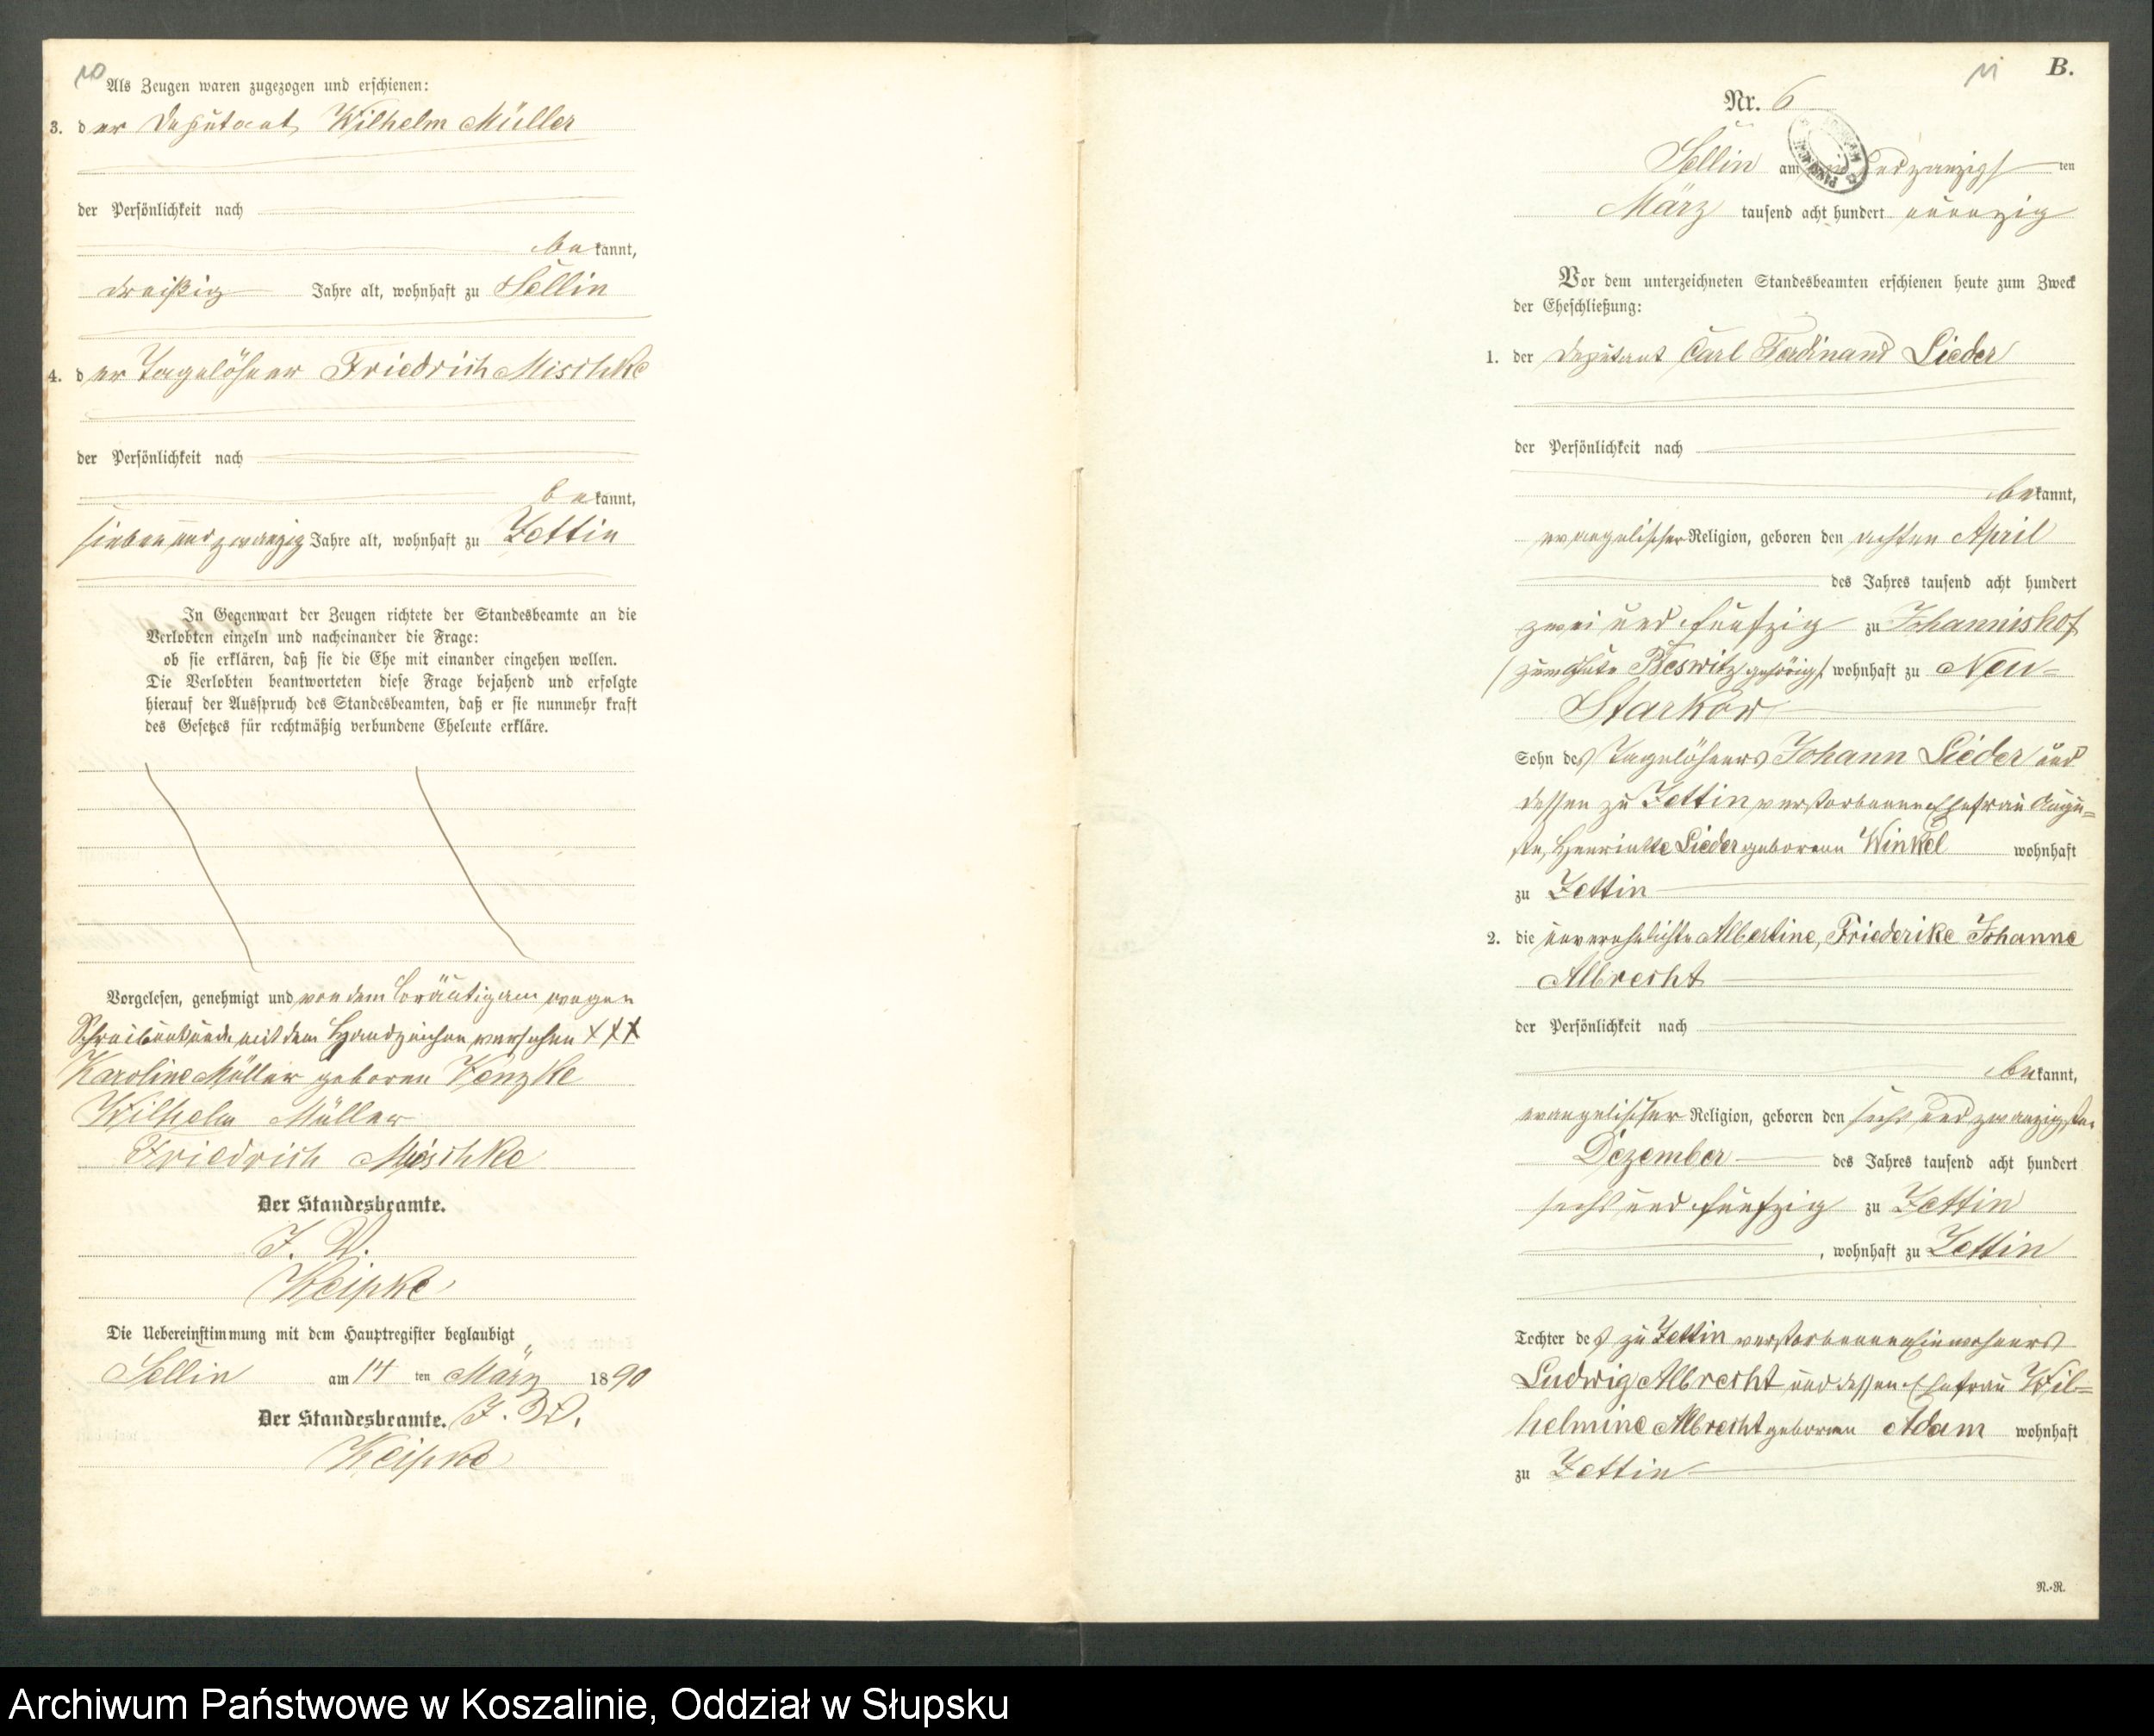 10
Als Zeugen waren zugezogen und erschienen:
3. der Deputant Wilhelm Müller
der Persönlichkeit nach
bekannt,
dreißig Jahre alt, wohnhaft zu Sellin
4. der Tagelöhner Friedrich Mischke
der Persönlichkeit nach
bekannt,
sieben und zwanzig Jahre alt, wohnhaft zu Zettin
In Gegenwart der Zeugen richtete der Standesbeamte an die
Verlobten einzeln und nacheinander die Frage:
ob sie erklären, daß sie die Ehe mit einander eingehen wollen.
Die Verlobten beantworteten diese Frage bejahend und erfolgte
hierauf der Ausspruch des Standesbeamten, daß er sie nunmehr kraft
des Gesetzes für rechtmäßig verbundene Eheleute erkläre.
Vorgelesen, genehmigt und von dem Bräutigam wegen
Schreibunkunde mit dem Handzeichen versehen XXX
Karoline Müller geboren
Wilhelm Müller
Friedrich Mischke
Der Standesbeamte.
J. V.
Keipke
Die Uebereinstimmung mit dem Hauptregister beglaubigt
Sellin am 14 ten März 1890
Der Standesbeamte. J. V.
Keipke
11
B.
Nr. 6
Sellin am undzwanzigsten
März tausend acht hundert neunzig
Vor dem unterzeichneten Standesbeamten erschienen heute zum Zweck
der Eheschließung:
1. der Deputant Carl Ferdinand Lieder
der Persönlichkeit nach
bekannt,
evangelischer Religion, geboren den achten April
des Jahres tausend acht hundert
zwei und fünfzig zu Johannishof
/ zum Gute Beswitz gehörig / wohnhaft zu Neu-
Starkow
Sohn des Tagelöhners Johann Lieder und
dessen zu Zettin verstorbenen Ehefrau Augu=
ste, Henriette Lieder geborenen Winkel wohnhaft
zu Zettin
2. die unverehelichte Albertine, Friederike Johanne
Albrecht
der Persönlichkeit nach
bekannt,
evangelischer Religion, geboren den sechs und zwanzigsten
Dezember des Jahres tausend acht hundert
sechs und fünfzig zu Zettin
, wohnhaft zu Zettin
Tochter des zu Zettin verstorbenen Einwohners
Ludwig Albrecht und dessen Ehefrau Wil=
helmine Albrecht geborenen Adam wohnhaft
zu Zettin
N.-R.
Archiwum Państwowe w Koszalinie, Oddział w Słupsku